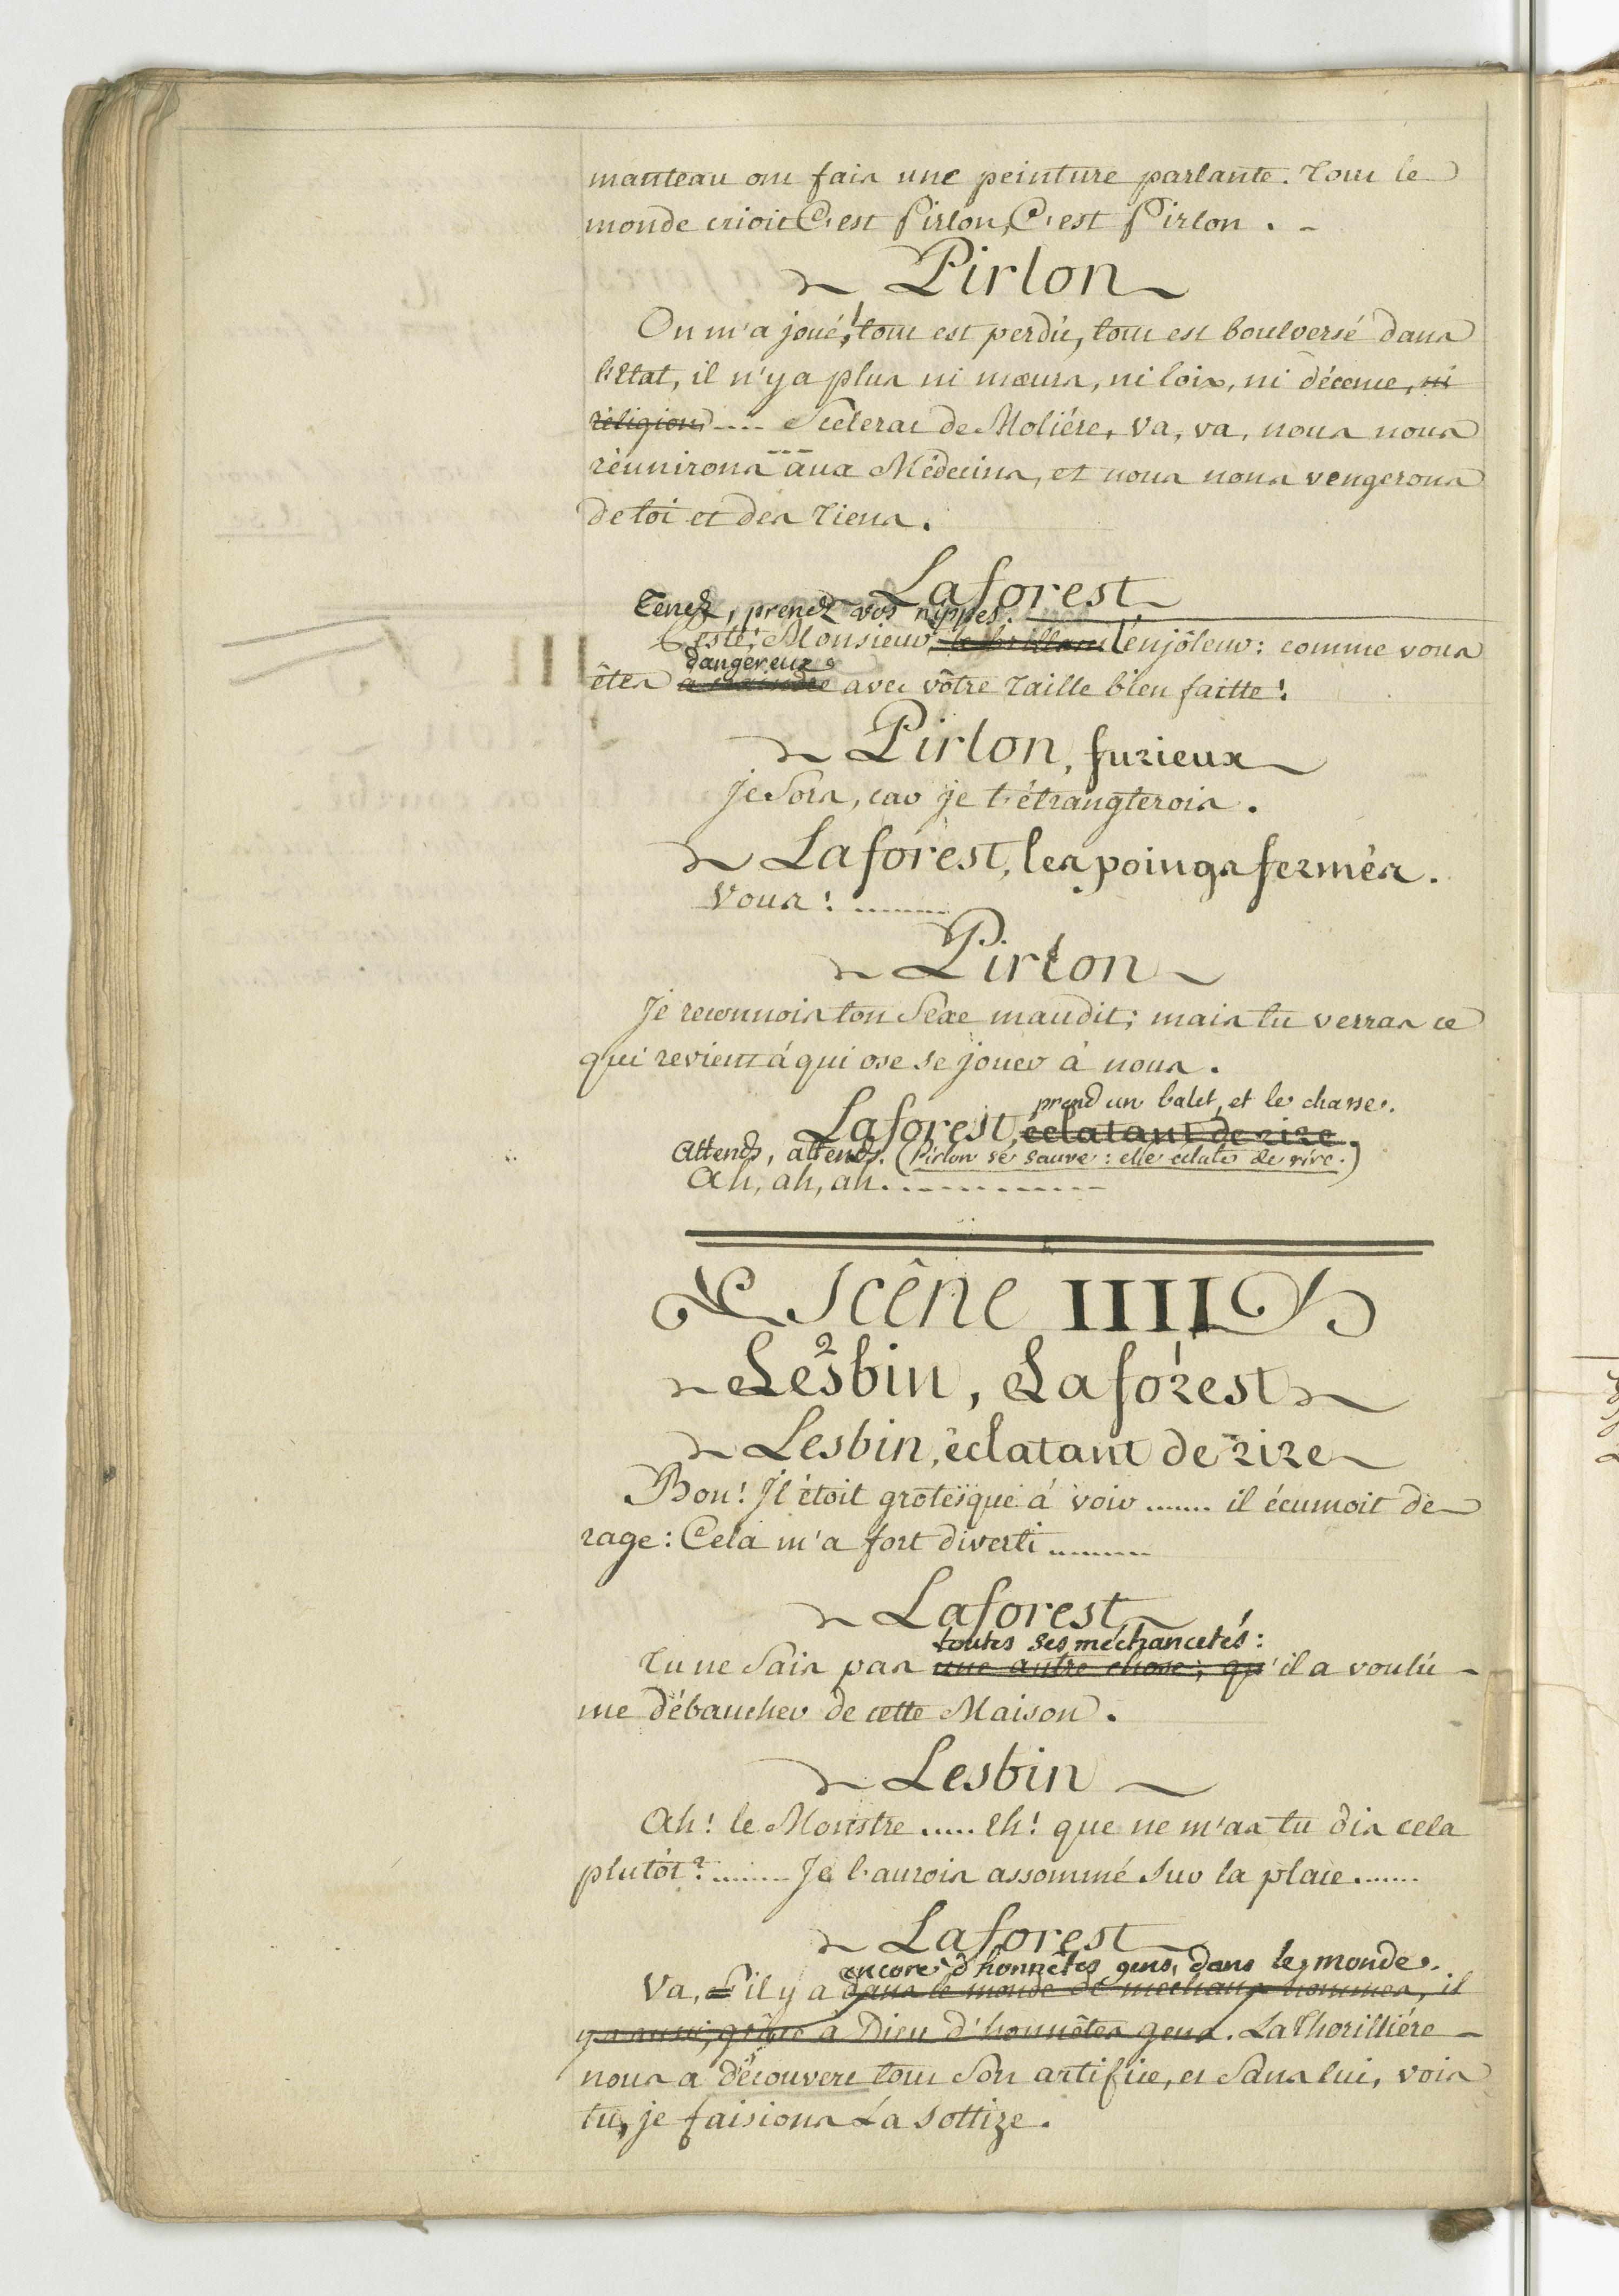 manteau ont fait une peinture parlante. Tout le
monde crioit C'est Pirlon, C'est Pirlon.
Pirlon
On m'a joué! tout est perdu, tout est boulversé dans
l'Etat, il n'y a plus ni mœurs, ni loix, ni décence, ni
réligion .... Scélerat de Moliére, va, va, nous nous
réunirons aux Médecins, et nous nous vengerons
de toi et des tiens.
Laforest
Tenez, prenez vos nippes.
Peste! Monsieur l'enjôleur: comme vous
dangereux
êtes à craindre avec vôtre taille bien faitte!
Pirlon, furieux
Je Sors, car je t'étranglerois.
Laforest, les poings fermés.
Vous! ........
Pirlon
Je reconnois ton Sexe maudit; mais tu verras ce
qui revient à qui ose se jouer à nous.
prend un balet, et le chasse.
Laforest, éclatant de rire.
Attends, attends. (Pirlon se sauve: elle eclate de rire.)
Ah, ah, ah. ...........
Scêne IIII
2 1
Lesbin, Laforest
Lesbin, éclatant de rire
Bon! Il étoit grotesque à voir ....... il écumoit de
rage: Cela m'a fort diverti .........
Laforest
toutes ses méchancetés:
Tu ne Sais pas une autre chose; qu'il a voulu
me débaucher de cette Maison.
Lesbin
Ah! le Monstre ..... Eh! que ne m'as tu dis cela
plutôt? ....... Je l'aurois assommé Sur la place .......
Laforest
encore d'honnêtes gens, dans le monde.
Va, S'il y a dans le monde de mechans hommes, il
y a aussi, grâce à Dieu d'honnêtes gens. La Thorilliére
nous a découvert tout Son artifice, et Sans lui, vois
tu, je faisions La Sottize.